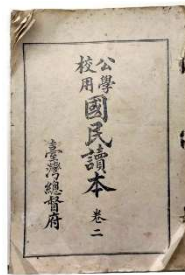 公學
校用
國民讀本 卷二
臺灣總督府